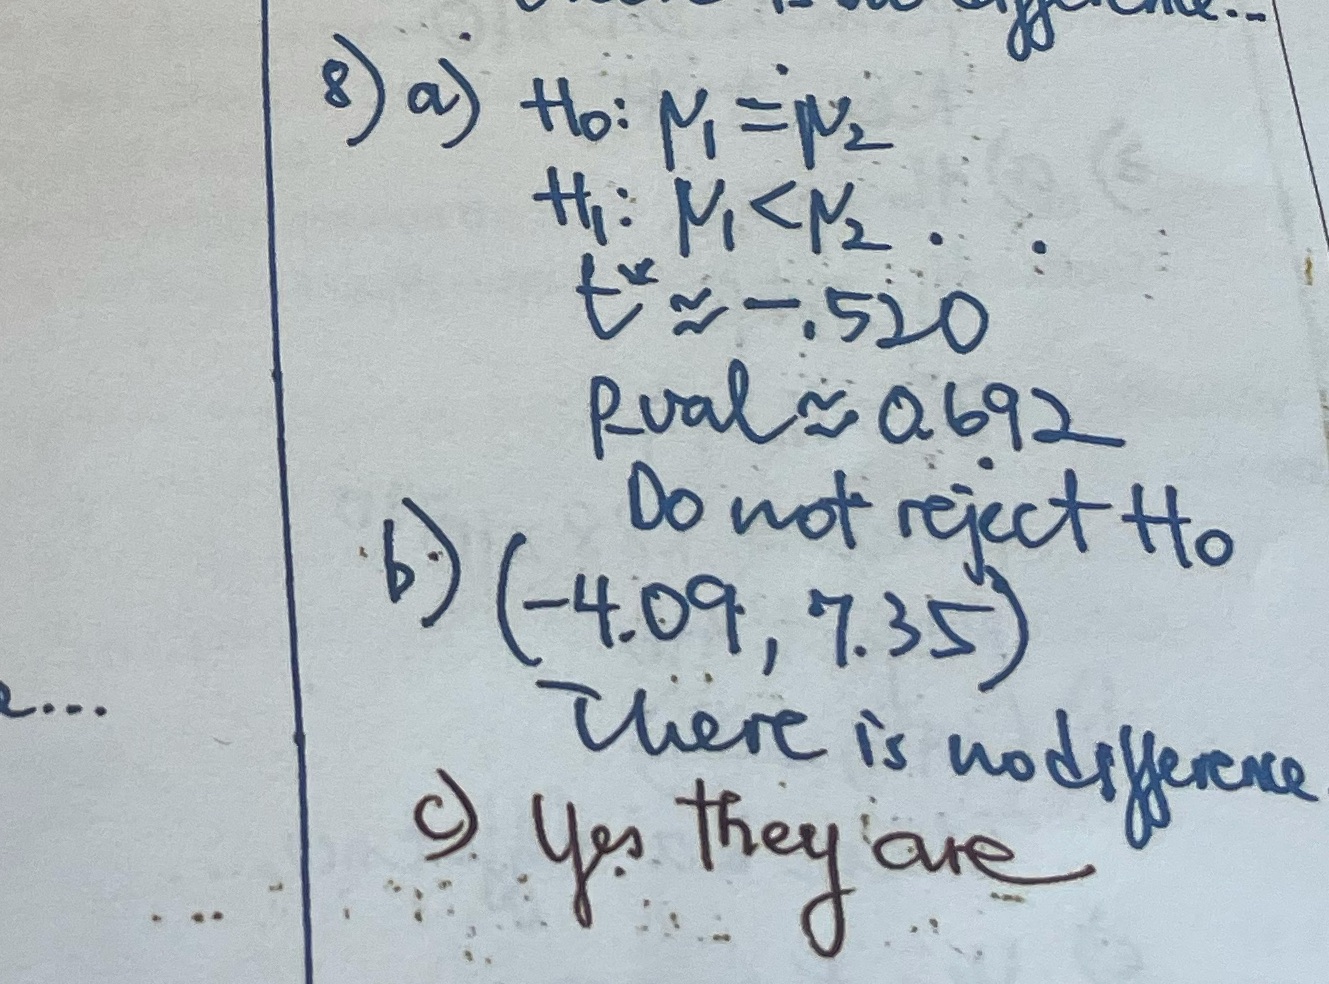 there is no difference...
8) a) H₀: μ₁ = μ₂
H₁: μ₁ < μ₂
t* ≈ -.520
pval ≈ 0.692
Do not reject H₀
b) (-4.09, 7.35)
There is no difference
c) Yes they are